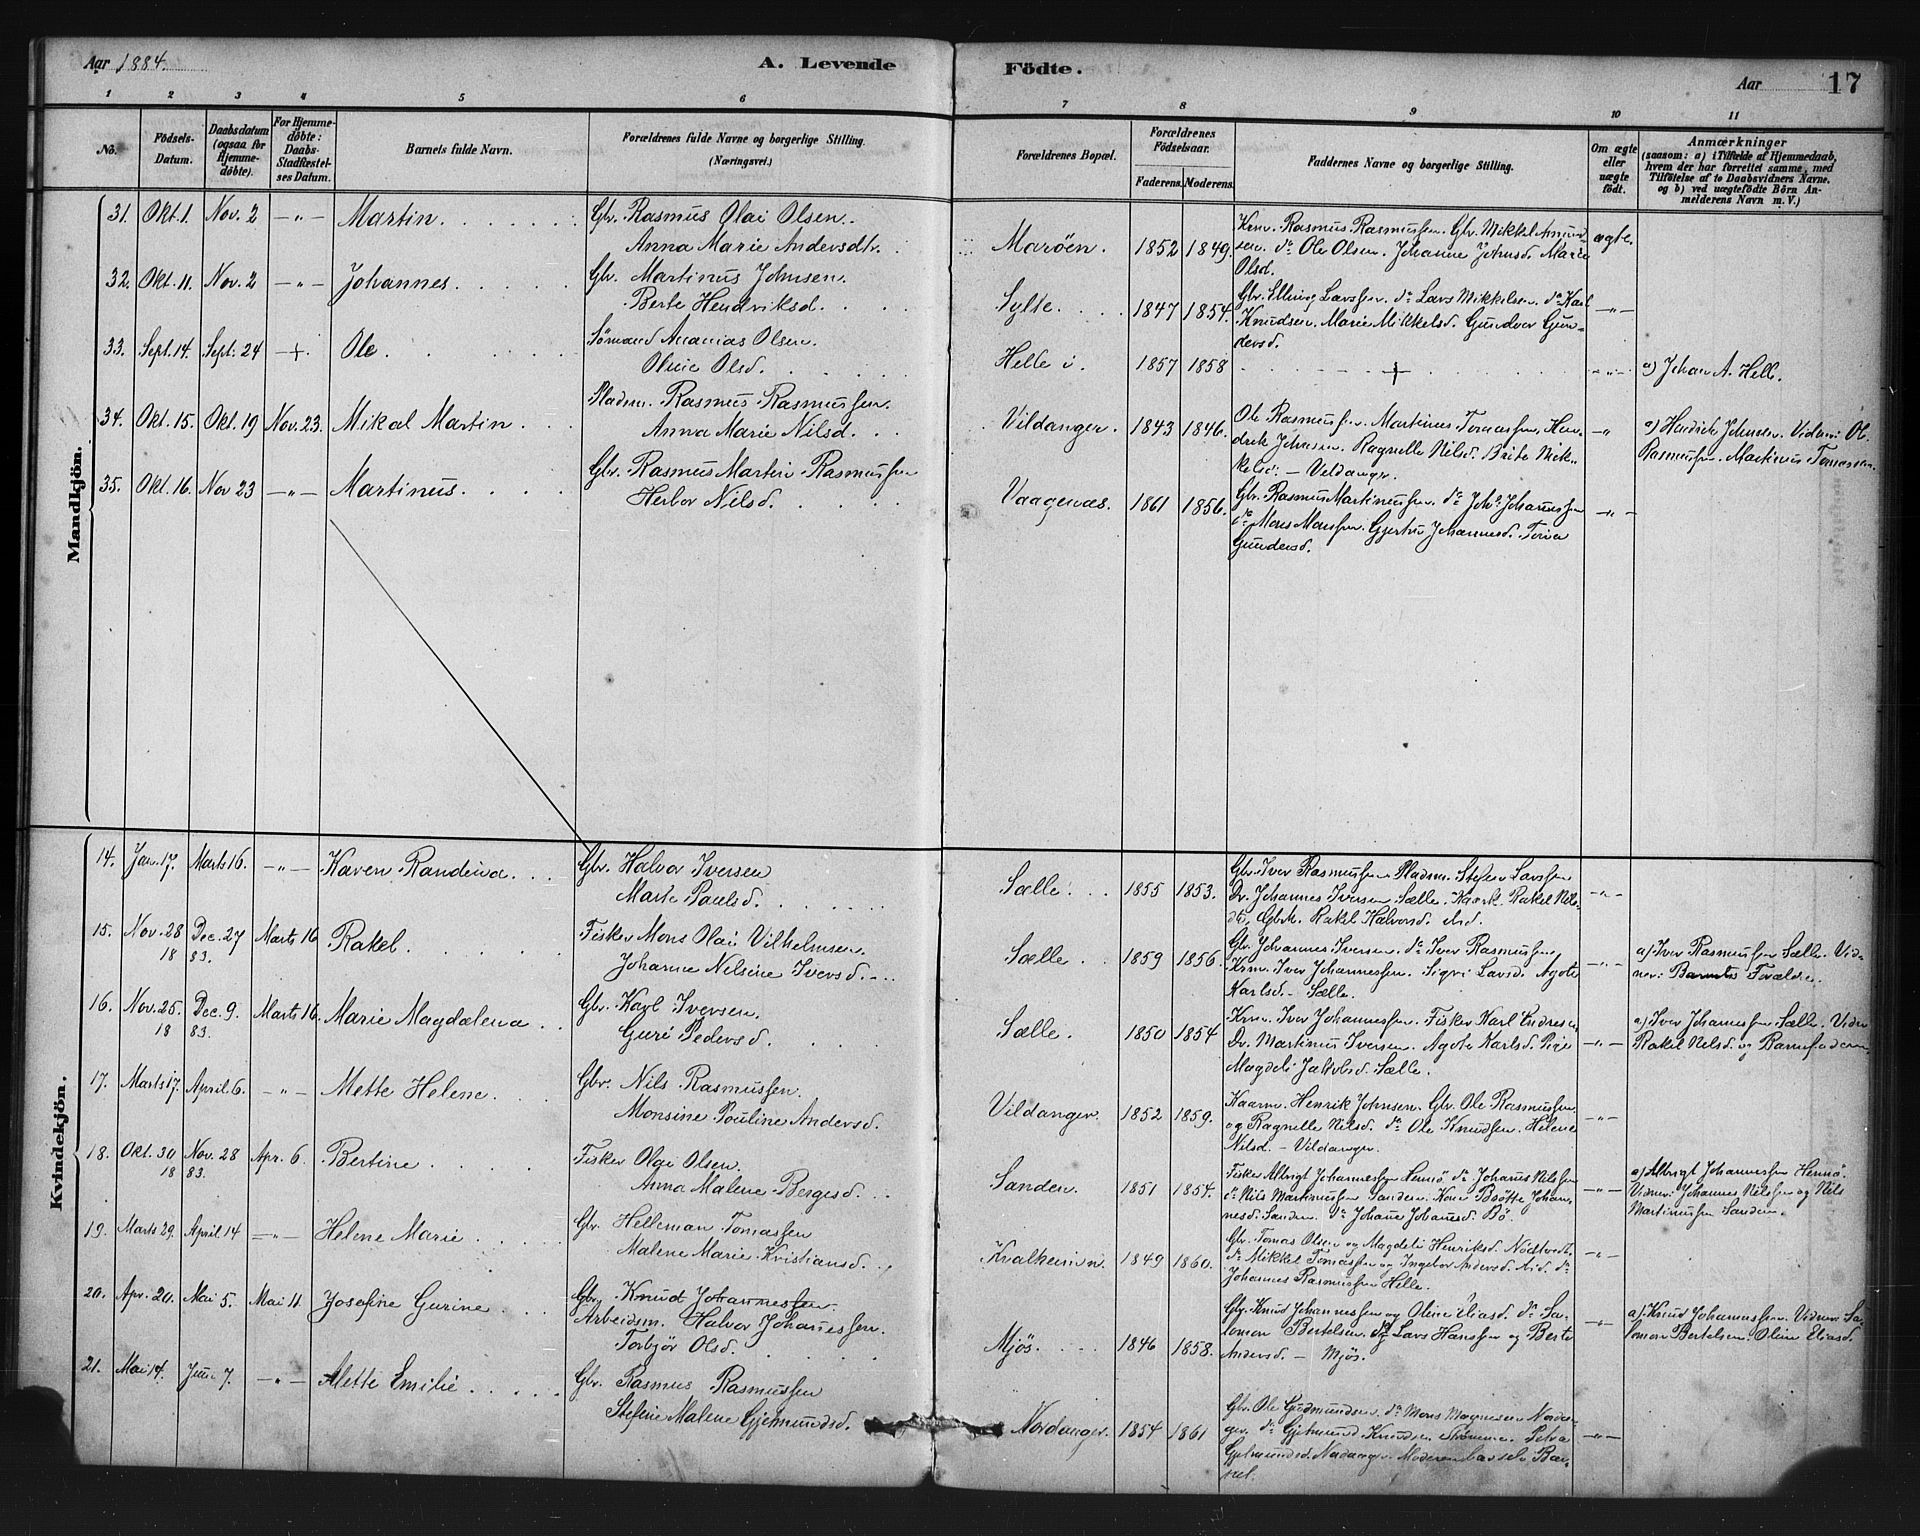 Aar 1884.
A. Levende Födte.
Aar 17
1 2 3 4 5 6 7 8 9 10 11
No.
Födsels-Datum.
Daabsdatum (ogsaa for Hjemme-döbte).
For Hjemme-döbte: Daabs-Stadfæstel-ses Datum.
Barnets fulde Navn.
Forældrenes fulde Navne og borgerlige Stilling.
(Næringsvei.)
Forældrenes Bopæl.
Forældrenes Födselsaar.
Faderens. Moderens.
Faddernes Navne og borgerlige Stilling.
Om ægte eller uægte födt.
Anmærkninger
(saasom: a) i Tilfælde af Hjemmedaab, hvem der har forrettet samme, med Tilföielse af to Daabsvidners Navne, og b) ved uægtefödte Börn An-melderens Navn m. V.)
Mandkjön.
31. Okt. 1 Nov. 2 -"- Martin. Gbr. Rasmus Olai Olsen.
Anna Marie Andersdtr. Marøen. 1852 1849.
Krm. Rasmus Rasmussen. Gbr. Mikkel Amund-
sen. do Ole Olsen. Johanne Johnsd. Marie
Olsd. ægte.
32. Okt. 11. Nov. 2 -"- Johannes. Gbr. Martinus Johnsen.
Berte Hendriksd. Sylte. 1847 1854.
Gbr. Elling Larssen. do Lars Mikkelsen. do Karl
Knudsen. Marie Mikkelsd. Gundvor Gun-
dersd. -"-
33. Sept. 14. Sept. 24 -+- Ole Sømand Ananias Olsen.
Oline Olsd. Helle i. 1857 1858 + -"- a) Johan A. Helle.
34. Okt. 15. Okt. 19 Nov. 23. Mikal Martin Pladsm. Rasmus Rasmussen.
Anna Marie Nilsd. Vildanger. 1843 1846.
Ole Rasmussen. Martinus Tomassen. Hen-
drik Johnsen. Ragnelle Nilsd. Brite Mik-
kelsd. - Vildanger. -"-
a) Hendrik Johnsen. Vidner: Ol.
Rasmussen. Martinus Tomassen.
35. Okt. 16. Nov 23 -"- Martinus. Gbr. Rasmus Martin Rasmussen
Herbor Nilsd. Vaagenæs. 1861 1856.
Gbr. Rasmus Martinussen. do Johs Johannessen
do Mons Monssen. Gjertru Johannesd.
Gundersd. -"-
Kvindekjön.
14. Jan. 17. Marts 16. -"- Karen Randina. Gbr. Halvor Iversen
Marte Paulsd. Sælle. 1855 1853.
Gbr. Iver Rasmussen. Pladsm. Stefen Larssen
Dr. Johannes Iversen Sælle. Rakel Nils-
Rakel Halvorsd. -"-
15. Nov. 28 18 Dec. 27 83. Marts 16 Rakel. Fisker Mons Olai Vilhelmsen
Johanne Nelsine Iversd. Sælle. 1859 1856.
Gbr. Johannes Iversen. do Iver Rasmussen,
Krm. Iver Johannessen. Sigri Larsd. Agote
Karlsd. - Sælle. -"-
a) Iver Rasmussen Sælle. Vid-
ner: Barnets Forældre.
16. Nov. 25. 18 Dec. 9. 83. Marts 16. Marie Magdalena Gbr. Karl Iversen.
Guri Pedersd. Sælle. 1850 1854
Krm. Iver Johannessen. Fisker Karl Endresen
Dr. Martinus Iversen. Agote Karlsd. Pige
Magdeli Jakobsd. Sælle. -"-
a) Iver Johannessen Sælle. Vidner
Rakel Nilsd. og Barnefaderen
17. Marts 17. April 6. -"- Mette Helene. Gbr. Nils Rasmussen.
Monsine Pouline Andersd. Vildanger. 1852 1859.
Kaarm. Henrik Johnsen. Gbr. Ole Rasmussen
og Ragnelle Nilsd. do Ole Knudsen. Helene
Nilsd. - Vildanger. -"-
18. Okt. 30 18 Nov. 28 83. Apr. 6. Bertine. Fisker Olai Olsen.
Anna Malene Bergesd. Sanden. 1851 1854.
Fisker Albrigt Johannessen Hennö. do Johannes Nilssen
do Nils Martinussen Sanden. Kone Johan-
nesd. Sanden. do Johane Johanesd. Bö. -"-
a) Albrigt Johannessen Hennö.
Vidner: Johannes Nilssen og Nils
Martinussen Sanden.
19. Marts 29. April 14 -"- Helene Marie. Gbr. Helleman Tomassen
Malene Marie Kristiansd. Kvalheimen. 1849 1860.
Gbr. Tomas Olsen og Magdeli Henriksd. Nödtvedt.
do Mikkel Tomassen og Ingebor Andersd. Eid. do
Johannes Rasmussen Helle. -"-
20. Apr. 20. Mai 5. Mai 11. Josefine Gurine. Gbr. Knud Johannessen.
Arbeidsm. Halvor Johannessen.
Torbjør Olsd. Mjös. 1846 1858.
Gbr. Knud Johannessen og Oline Eliasd. do Sa-
lomon Bertelsen. do Lars Hanssen og Berte
Andersd. - Mjös. -"-
a) Knud Johannessen. Vidner: Sa-
lomon Bertelsen. Oline Eliasd.
21. Mai 14. Juni 7. -"- Alette Emilie. Gbr. Rasmus Rasmussen
Stefine Malene Gjelmundsd. Nordanger. 1854 1861
Gbr. Ole Gudmundsen. do Mons Magnesen Nordan-
ger. do Gjelmund Knudsen Strömme. Petra
Gjelmundsd. Nordanger.
-"-